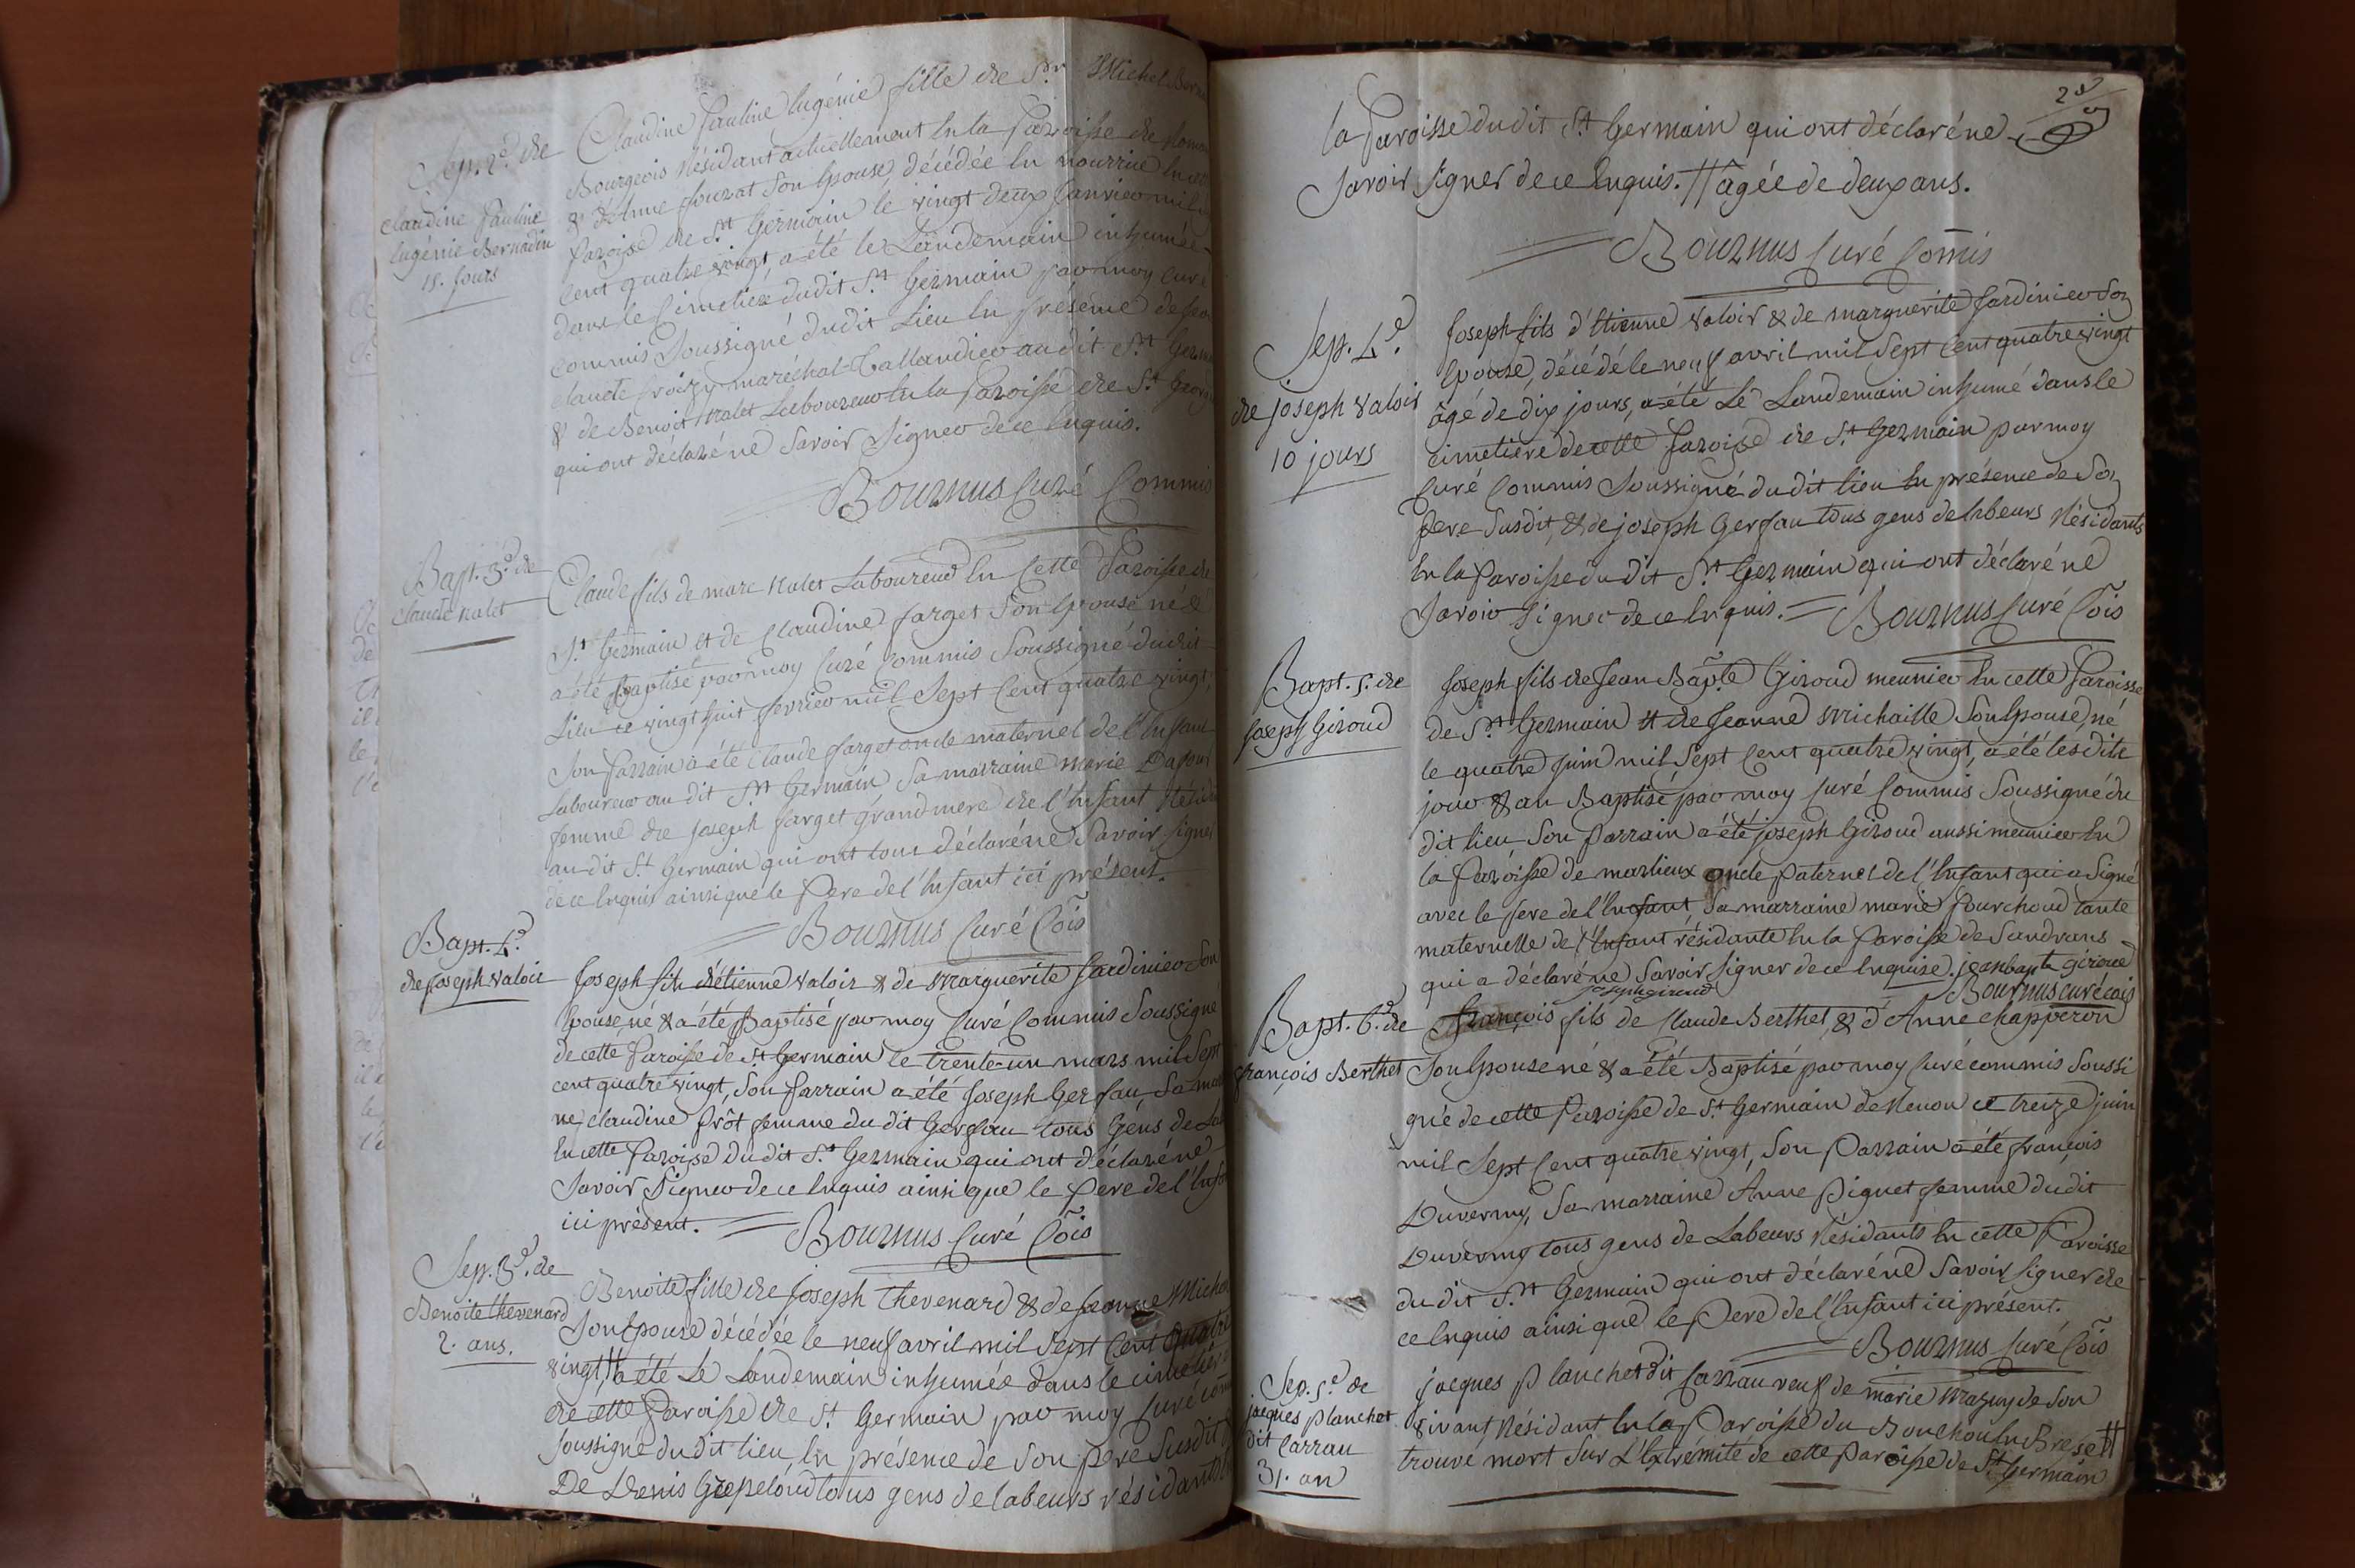 Sep. 2.e de
Claudine Pauline
Eugénie Bernadin
15. jours
Claudine Pauline Eugénie fille de S.r Michel
Bourgeois Résidant actuellement En la Paroisse de
& d'Anne fouzat Son Epouse, décédée En nourrice
Paroisse de S.t Germain le vingt deux Janvier mil
Cent quatre vingt, a été le Landemain inhumée
dans le Cimetiere dudit S.t Germain par moy Curé
commis Soussigné dudit Lieu En présence de
claude maréchal-Taillandier audit S.t
& de Benoit Nalet Laboureur En la Paroisse de S.t
qui ont déclaré ne Savoir Signer de ce Enquis.
Bournus Curé Commis
Bapt. 3.e de
claude nalet
Claude fils de marc Nalet Laboureur En Cette Paroisse de
S.t Germain et de Claudine farget Son Epouse né &
a été Baptisé par moy Curé Commis Soussigné dudit
Lieu ce vingt huit fevrier mil Sept Cent quatre vingt,
Son Parrain a été Claude farget oncle maternel de l'Enfant
Laboureur au dit S.t Germain Sa marraine marie
femme de Joseph farget grand mere de l'Enfant
au dit S.t Germain qui ont tous déclaré ne Savoir Signer
de ce Enquis ainsi que le Pere de l'Enfant ici présent.
Bournus Curé Cois
Bapt. 4.e
de joseph valoir
Joseph fils d'étienne valoir & de Marguerite Jardinier Son
Epouse né & a été Baptisé par moy Curé Commis Soussigné
de cette Paroisse de S.t Germain le trente-un mars mil Sept
cent quatre vingt, Son Parrain a été Joseph Gerfau, Sa
ne, claudine Prôt femme du dit Gerfau tous Géns de
En cette Paroisse du dit S.t Germain qui ont déclaré ne
Savoir Signer de ce Enquis ainsi que le Pere de
ici présent. Bournus Curé Cois
Sep. 3.e de
Benoite thevenard
2. ans.
Benoite fille de Joseph Thevenard & de Jeanne
Son Epouse décédée le neuf avril mil Sept Cent quatre
vingt, # a été Le Landemain inhumée dans le cimetiere
de cette Paroisse de S.t Germain par moy Curé
Soussigné du dit lieu, En présence de Son pere Susdit
De Denis Grepeloud tous gens de labeurs résidants
la Paroisse du dit S.t Germain qui ont déclaré ne
Savoir Signer de ce Enquis. # agée de deux ans.
Bournus Curé Comis
Sep. 4.e
de joseph valoir
10 jours
Joseph fils d'Etienne valoir & de marguerite Jardinier Son
Epouse, décédé le neuf avril mil Sept Cent quatre vingt
âgé de dix jours, a été Le Landemain inhumé dans le
cimetiere de cette Paroisse de S.t Germain par moy
Curé Commis Soussigné du dit lieu En présence de Son
Pere Susdit, & de joseph Gerfau tous gens de labeurs Résidants
En la Paroisse du dit S.t Germain qui ont déclaré ne
Savoir Signer de ce Enquis. Bournus Curé Cois
Bapt. 5. de
Joseph Giroud
Joseph fils de Jean Bapte Giroud meunier En cette Paroisse
de S.t Germain et de Jeanne Michaille Son Epouse, né
le quatre Juin mil Sept Cent quatre vingt, a été lesdits
jour & an Baptisé par moy Curé Commis Soussigné du
dit lieu, Son Parrain a été joseph Giroud aussi meunier En
la Paroisse de marlieux oncle Paternel de l'Enfant qui a Signé
avec le Pere de l'Enfant, Sa marraine marie Pourchoud tante
maternelle de l'Enfant résidante En la Paroisse de Sandrans
qui a déclaré ne Savoir Signer de ce Enquise. jeanbapte giroud
joseph giroud Bournus curé cois
Bapt. 6.e de
françois Berthet
François fils de Claude Berthet, & d'Anne chapperon
Son Epouse né & a été Baptisé par moy Curé commis Soussi
gné de cette Paroisse de S.t Germain de Renon ce treize juin
mil Sept Cent quatre vingt, Son Parrain a été françois
Duvernay, Sa marraine Anne Piguet femme du dit
Duvernay tous gens de Labeurs Résidants En cette Paroisse
du dit S.t Germain qui ont déclaré ne Savoir Signer de
ce Enquis ainsi que le Pere de l'Enfant ici présent.
Bournus Curé Cois
Sep. 5.e de
jacques planchet
dit Carrau
31. an
jacques Planchet dit Carrau veuf de marie Mazuy de Son
vivant Résidant En la Paroisse du Bouchou En Bresse #
trouvé mort Sur L'Extrémité de cette Paroisse de S.t Germain